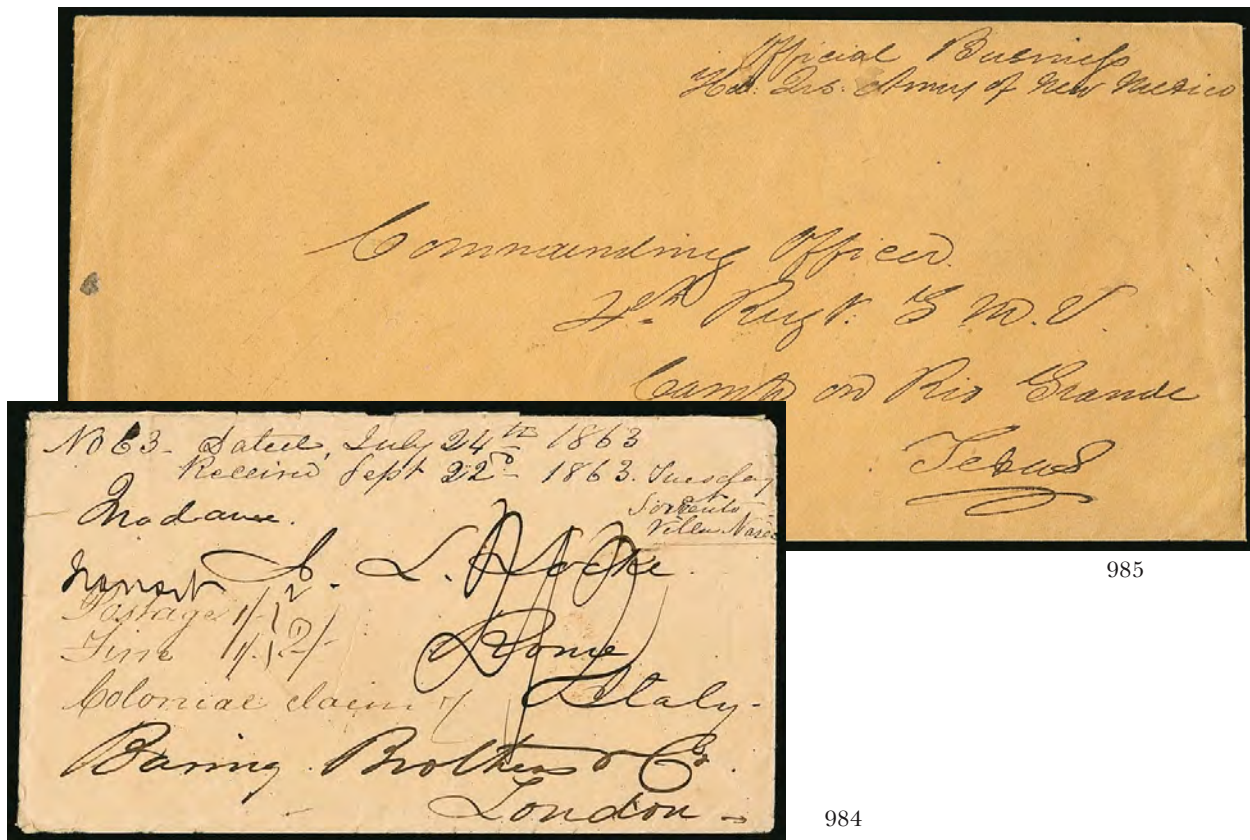 Official Business
Hd. Qrs. Army of New Mexico
Commanding Officer
4th Regt. S M. V.
Camp on Rio Grande
Texas
985
No 63 - Dated, July 24th 1863
Received Sept 22d - 1863. Tuesday
Sorrento
Villa
Madame.
L. Locke
Postage 1/
Fine 1/ 2/
Rome
Colonial claim
Italy -
Baring Brothers & Co.
London -
984